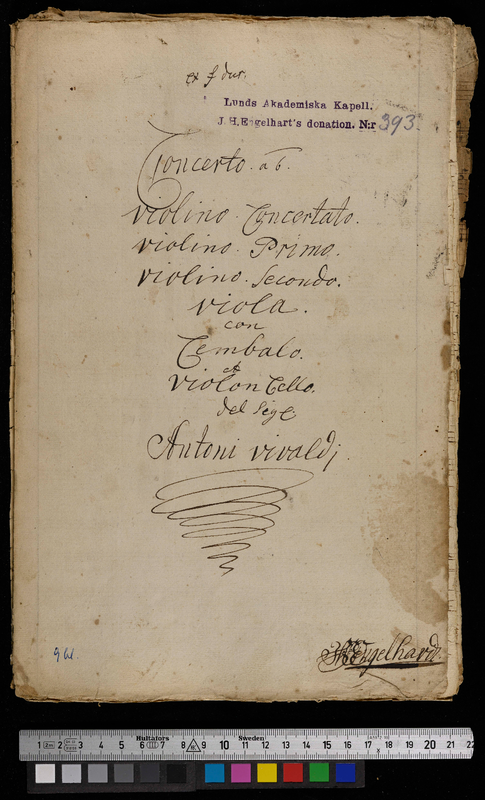 ex f dur.
Lunds Akademiska Kapell.
J.H.Engelhart's donation. N:r 393.
Concerto. a 6.
violino. Concertato.
violino. Primo.
violino. Secondo.
viola.
con
Cembalo.
et
violon Cello.
del Sigr
Antoni vivaldi.
Engelhard
Hultafors Sweden
1 2 3 4 5 6 7 8 9 10 11 12 13 14 15 16 17 18 19 20 21 22